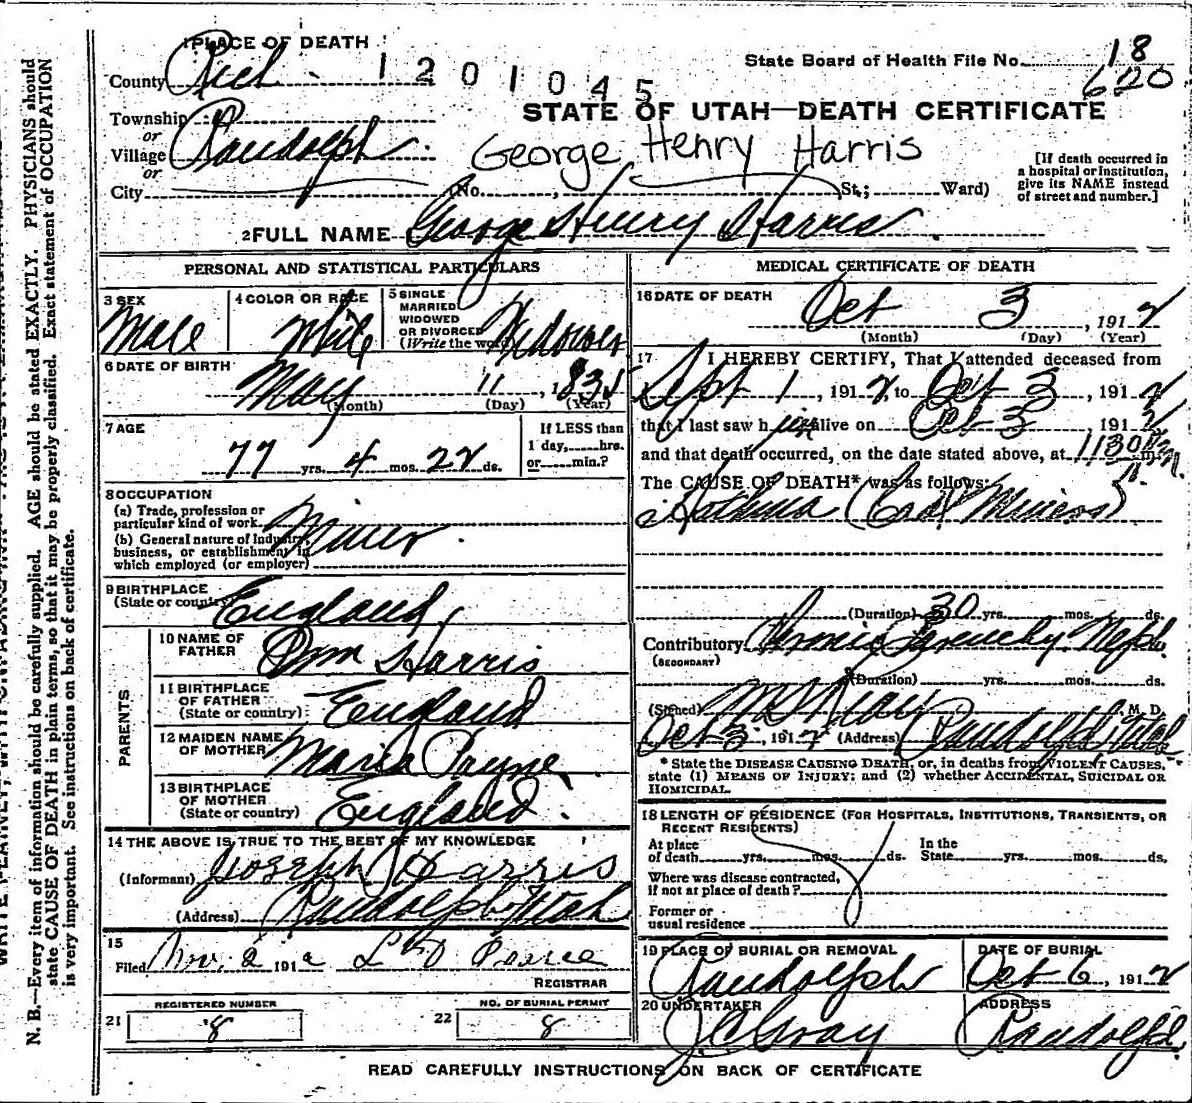 1 PLACE OF DEATH
County Rich
1201045
State Board of Health File No. 18
620
STATE OF UTAH—DEATH CERTIFICATE
Township
or
Village Randolph
or
City
George Henry Harris
(No. St.; Ward)
[If death occurred in
a hospital or institution,
give its NAME instead
of street and number.]
2 FULL NAME George Henry Harris
PERSONAL AND STATISTICAL PARTICULARS
3 SEX
Male
4 COLOR OR RACE
White
5 SINGLE
MARRIED
WIDOWED
OR DIVORCED
(Write the word) Widower
6 DATE OF BIRTH
May 11, 1835
(Month) (Day) (Year)
7 AGE
77 yrs. 4 mos. 22 ds.
If LESS than
1 day, hrs.
or min.?
8 OCCUPATION
(a) Trade, profession or
particular kind of work Miner
(b) General nature of Industry,
business, or establishment in
which employed (or employer)
9 BIRTHPLACE
(State or country) England
PARENTS
10 NAME OF
FATHER Wm Harris
11 BIRTHPLACE
OF FATHER
(State or country) England
12 MAIDEN NAME
OF MOTHER Maria Payne
13 BIRTHPLACE
OF MOTHER
(State or country) England
14 THE ABOVE IS TRUE TO THE BEST OF MY KNOWLEDGE
(Informant) Joseph Harris
(Address) Randolph Utah
15
Filed Nov. 2 1912 L Pearce
REGISTRAR
REGISTERED NUMBER
21 8
NO. OF BURIAL PERMIT
22 8
MEDICAL CERTIFICATE OF DEATH
16 DATE OF DEATH
Oct 3, 1912
(Month) (Day) (Year)
17 I HEREBY CERTIFY, That I attended deceased from
Sept 1, 1912, to Oct 3, 1912
that I last saw him alive on Oct 3, 1912
and that death occurred, on the date stated above, at 1130 P m.
The CAUSE OF DEATH* was as follows:
Asthma (Coal Miners)
(Duration) 30 yrs. mos. ds.
Contributory
(SECONDARY)
(Duration) yrs. mos. ds.
(Signed) M. D.
Oct 3, 1912 (Address) Randolph Utah
* State the DISEASE CAUSING DEATH, or, in deaths from VIOLENT CAUSES,
state (1) MEANS OF INJURY; and (2) whether ACCIDENTAL, SUICIDAL OR
HOMICIDAL.
18 LENGTH OF RESIDENCE (FOR HOSPITALS, INSTITUTIONS, TRANSIENTS, OR
RECENT RESIDENTS)
At place
of death yrs. mos. ds.
In the
State yrs. mos. ds.
Where was disease contracted,
if not at place of death?
Former or
usual residence
19 PLACE OF BURIAL OR REMOVAL
Randolph
DATE OF BURIAL
Oct 6, 1912
20 UNDERTAKER
J C Gray
ADDRESS
Randolph
READ CAREFULLY INSTRUCTIONS ON BACK OF CERTIFICATE
N. B.—Every item of information should be carefully supplied. AGE should be stated EXACTLY. PHYSICIANS should
state CAUSE OF DEATH in plain terms, so that it may be properly classified. Exact statement of OCCUPATION
is very important. See instructions on back of certificate.